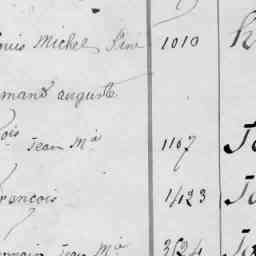 ouis Michel Péné 1010
mand auguste
ois
Jean Mie 1107
rancois 1123
Jean Mie 3124